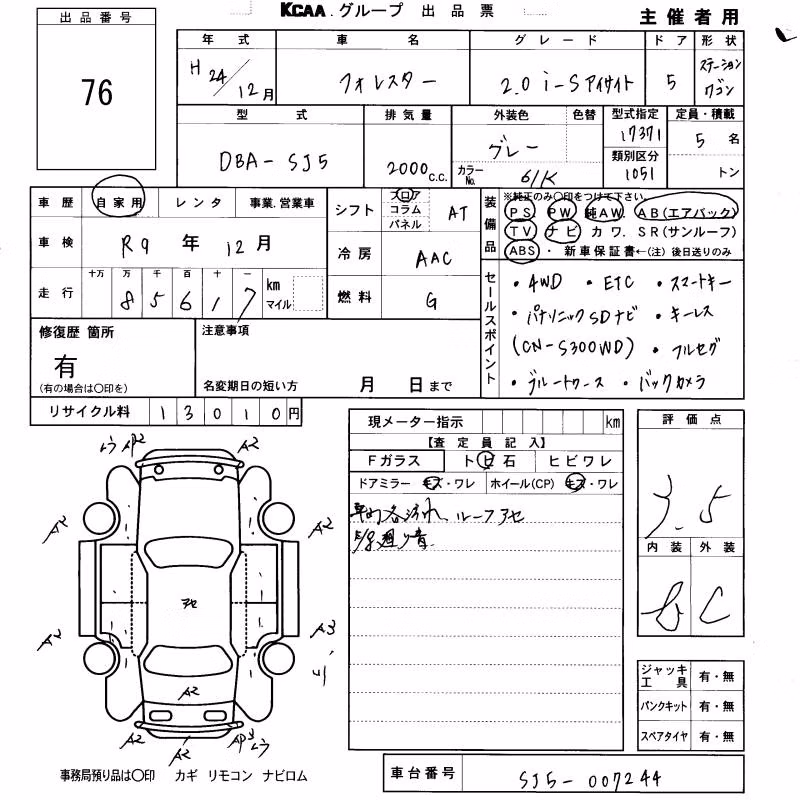 KCAA.グループ 出品票
主催者用
出品番号
76
年式 車名 グレード ドア 形状
H24/12月 フォレスター 2.0 i-Sアイサイト 5 ステーションワゴン
型式 排気量 外装色 色替 型式指定 定員・積載
DBA-SJ5 2000c.c. グレー 17371 5名
カラーNo. 61K 類別区分 1051 トン
車歴 自家用 レンタ 事業.営業車
車検 R9年12月
走行 十万 万 千 百 十 一
85617 km マイル
シフト フロア コラム パネル AT
冷房 AAC
燃料 G
装備品 ※純正のみ〇印をつけて下さい。
PS PW 純AW. AB(エアバック)
TV ナビ カワ. SR(サンルーフ)
ABS・新車保証書←(注)後日送りのみ
セールスポイント
・4WD ・ETC ・スマートキー
・パナソニックSDナビ ・キーレス
(CN-S300WD) ・フルセグ
・ブルートゥース ・バックカメラ
修復歴 箇所 注意事項
有
(有の場合は〇印を) 名変期日の短い方 月 日まで
リサイクル料 13010円
現メーター指示 km
【査定員記入】
Fガラス トビ石 ヒビワレ
ドアミラー キズ・ワレ ホイール(CP) キズ・ワレ
ルーフアセ
評価点
3.5
内装 外装
C
A2 A2
A2 A2
アセ
A2 A3
A2
A2 A2
ジャッキ工具 有・無
パンクキット 有・無
スペアタイヤ 有・無
事務局預り品は〇印 カギ リモコン ナビロム
車台番号 SJ5-007244